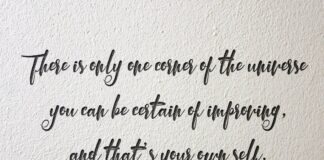 There is only one corner of the universe
you can be certain of improving,
and that's your own self.